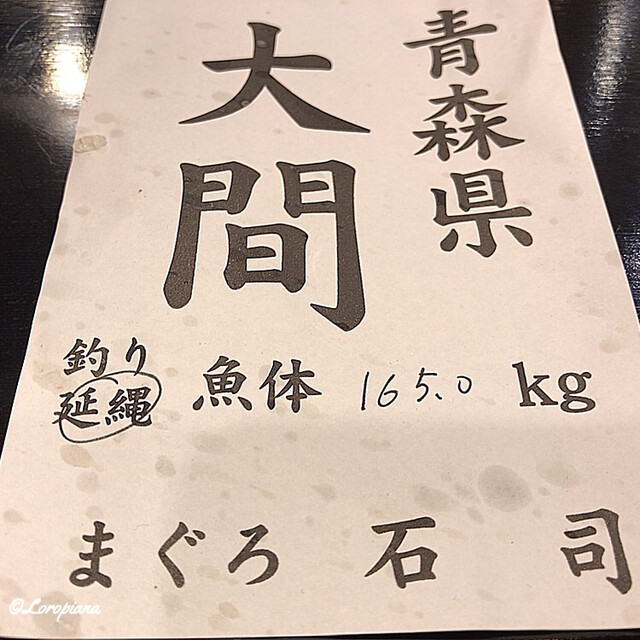 青森県
大間
釣り
延縄
魚体 165.0 kg
まぐろ 石司
©Loropiana